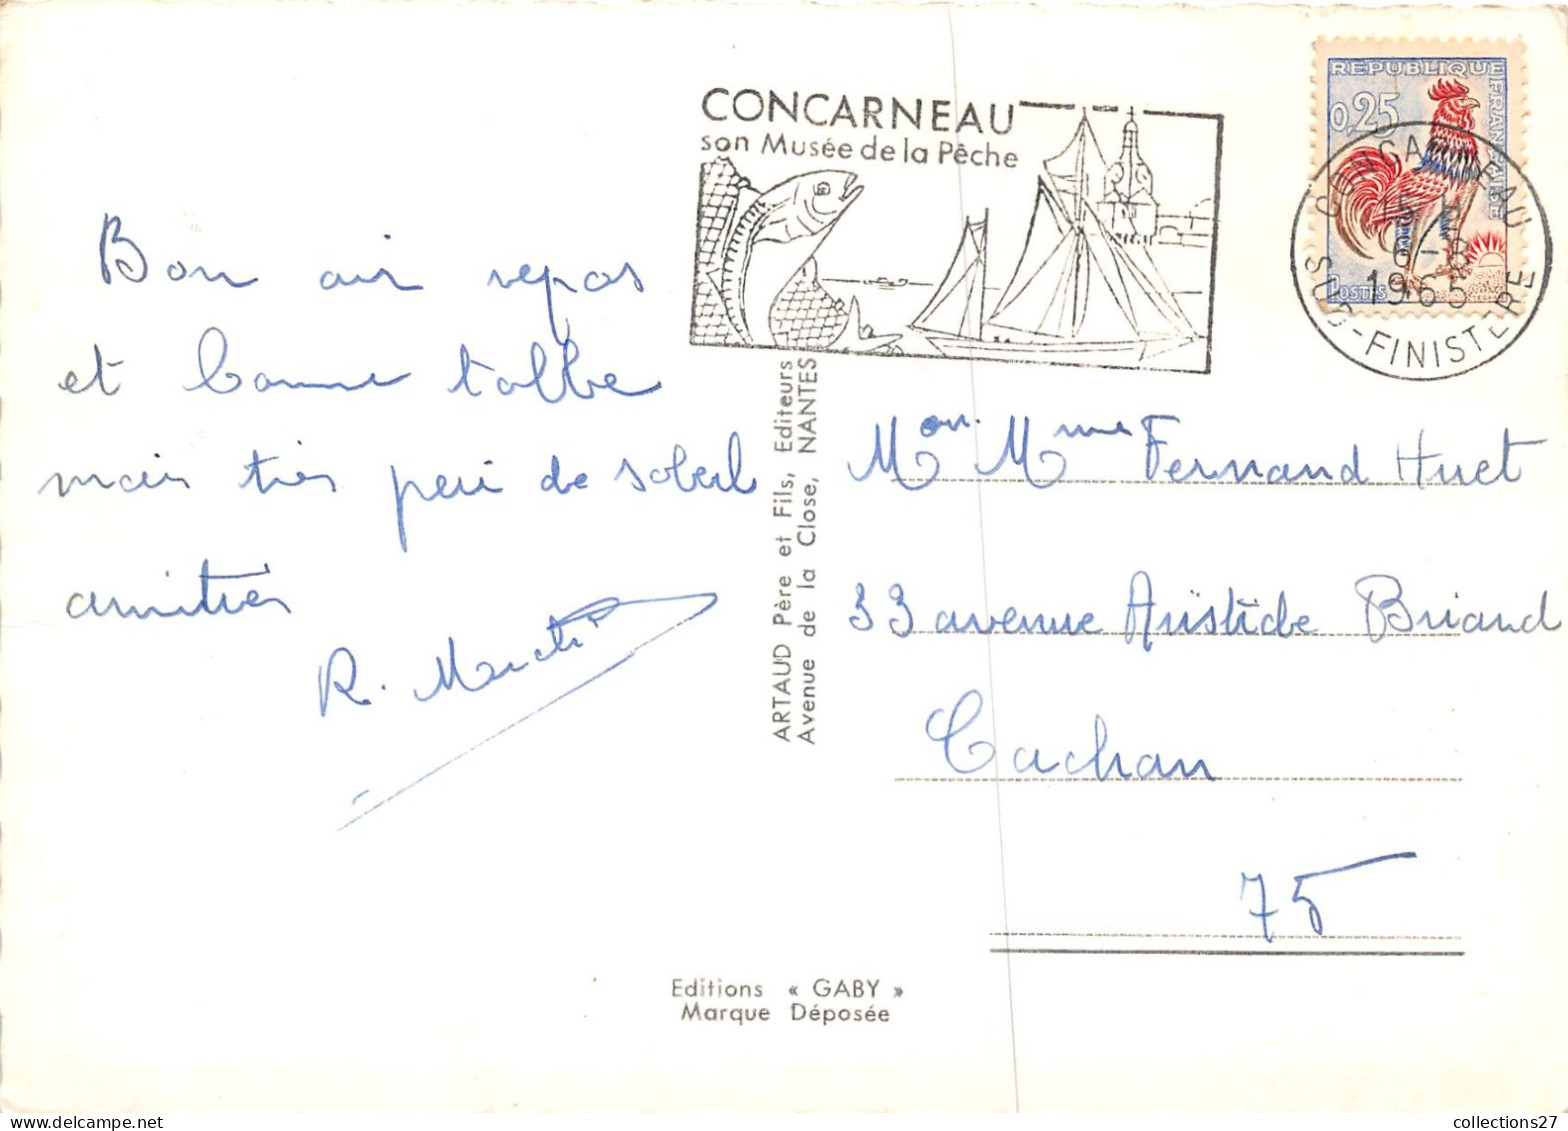 CONCARNEAU
son Musée de la Pêche
REPUBLIQUE FRANÇAISE
0,25
POSTES
CONCARNEAU
6-8
1965
SUD-FINISTERE
Bon air repos
et bonne table
mais très peu de soleil
amitiés
R.
ARTAUD Père et Fils, Editeurs
Avenue de la Close, NANTES
Mon. Mme Fernand Huet
33 avenue Aristide Briand
Cachan
75
Editions « GABY »
Marque Déposée
collections27